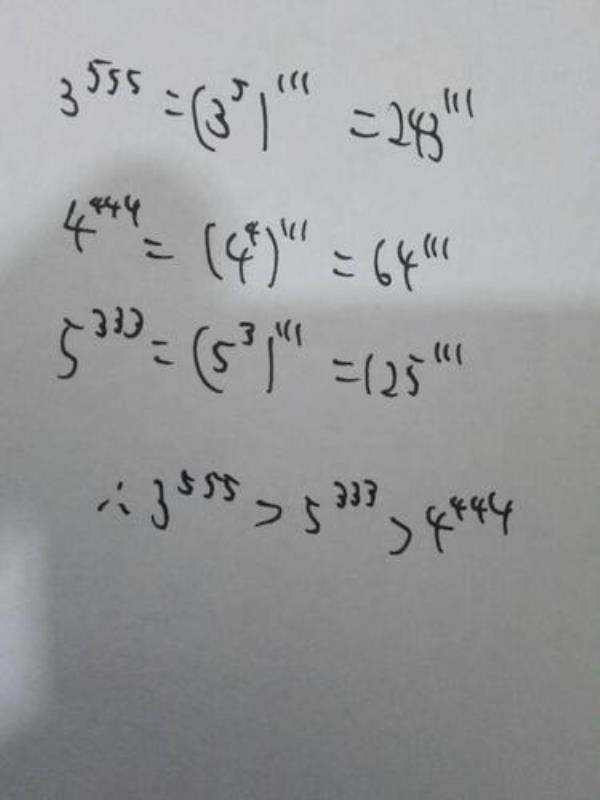 3^555 = (3^5)^111 = 243^111
4^444 = (4^4)^111 = 64^111
5^333 = (5^3)^111 = 125^111
∴ 3^555 > 5^333 > 4^444